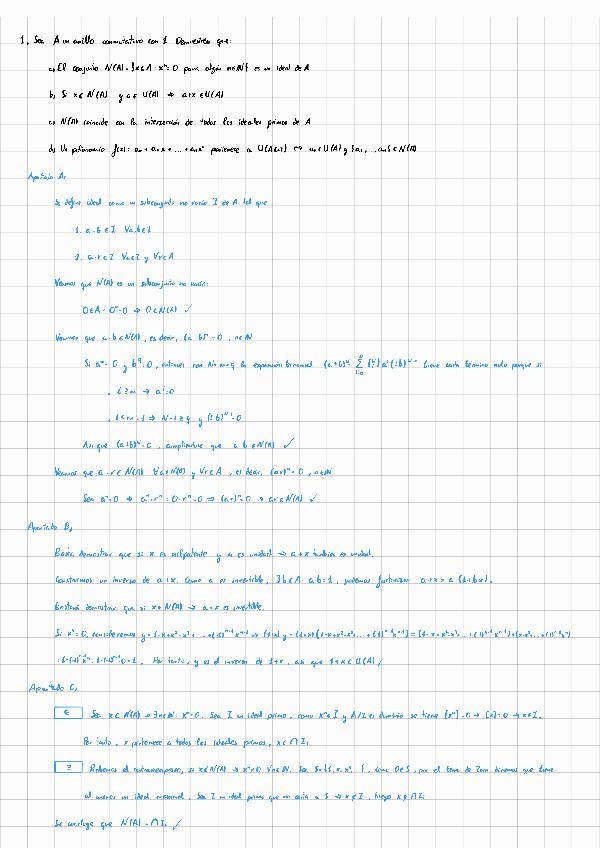 1. Sea A un anillo conmutativo con 1 Demuestra que:
a) El conjunto N(A) = {x ∈ A : xⁿ = 0 para algún n ∈ N} es un ideal de A
b) Si x ∈ N(A) y a ∈ U(A) ⇒ a+x ∈ U(A)
c) N(A) coincide con la intersección de todos los ideales primos de A
d) Un polinomio f(x) = a₀ + a₁x + ... + aₙxⁿ pertenece a U(A[x]) ⇔ a₀ ∈ U(A) y {a₁, ..., aₙ} ⊆ N(A)
Apartado A)
Se define ideal como un subconjunto no vacío I de A tal que
1. a-b ∈ I ∀a,b ∈ I
2. a·r ∈ I ∀a ∈ I y ∀r ∈ A
Veamos que N(A) es un subconjunto no vacío:
0 ∈ A 0ⁿ = 0 ⇒ 0 ∈ N(A) ✓
Veamos que a-b ∈ N(A), es decir, (a-b)ⁿ = 0, n ∈ N
Si aᵐ = 0 y b^q = 0, entonces con N = m+q la expansión binomial tiene cada término nulo porque si
· i ≥ m → aⁱ = 0
· i ≤ m-1 ⇒ N-i ≥ q y = 0
Así que = 0, cumpliéndose que a-b ∈ N(A) ✓
Veamos que a·r ∈ N(A) ∀a ∈ N(A) y ∀r ∈ A, es decir, (ar)ⁿ = 0, n ∈ N
Sea aⁿ = 0 ⇒ aⁿ·rⁿ = 0·rⁿ = 0 ⇒ (ar)ⁿ = 0 ⇒ ar ∈ N(A) ✓
Apartado B)
Basta demostrar que si x es nilpotente y a es unidad ⇒ a+x también es unidad.
Construimos un inverso de a+x. Como a es invertible, ∃b ∈ A : ab = 1, podemos factorizar a+x = a(1+bx).
Bastará demostrar que si x ∈ N(A) ⇒ es invertible.
Si xⁿ = 0, consideremos y = 1-x+x²-x³+...+(-1)ⁿ⁻¹xⁿ⁻¹ ⇒
Por tanto, y es el inverso de 1+x, así que 1+x ∈ U(A) ✓
Apartado C)
⊆ Sea x ∈ N(A) ⇒ ∃n ∈ N : xⁿ = 0. Sea I un ideal primo, como xⁿ ∈ I y A/I es dominio se tiene [xⁿ] = 0 ⇒ [x] = 0 ⇒ x ∈ I.
Por tanto, x pertenece a todos los ideales primos, x ∈ ∩ Iᵢ
⊇ el contrarrecíproco, si x ∉ N(A) ⇒ xⁿ ≠ 0 ∀n ∈ N. Sea S = {1, x, x², ...}, como 0 ∉ S, por el lema de Zorn tenemos que tiene
al menos un ideal maximal. Sea I un ideal primo que no corta a S ⇒ x ∉ I, luego x ∉ ∩ Iᵢ
Se concluye que N(A) = ∩ Iᵢ ✓